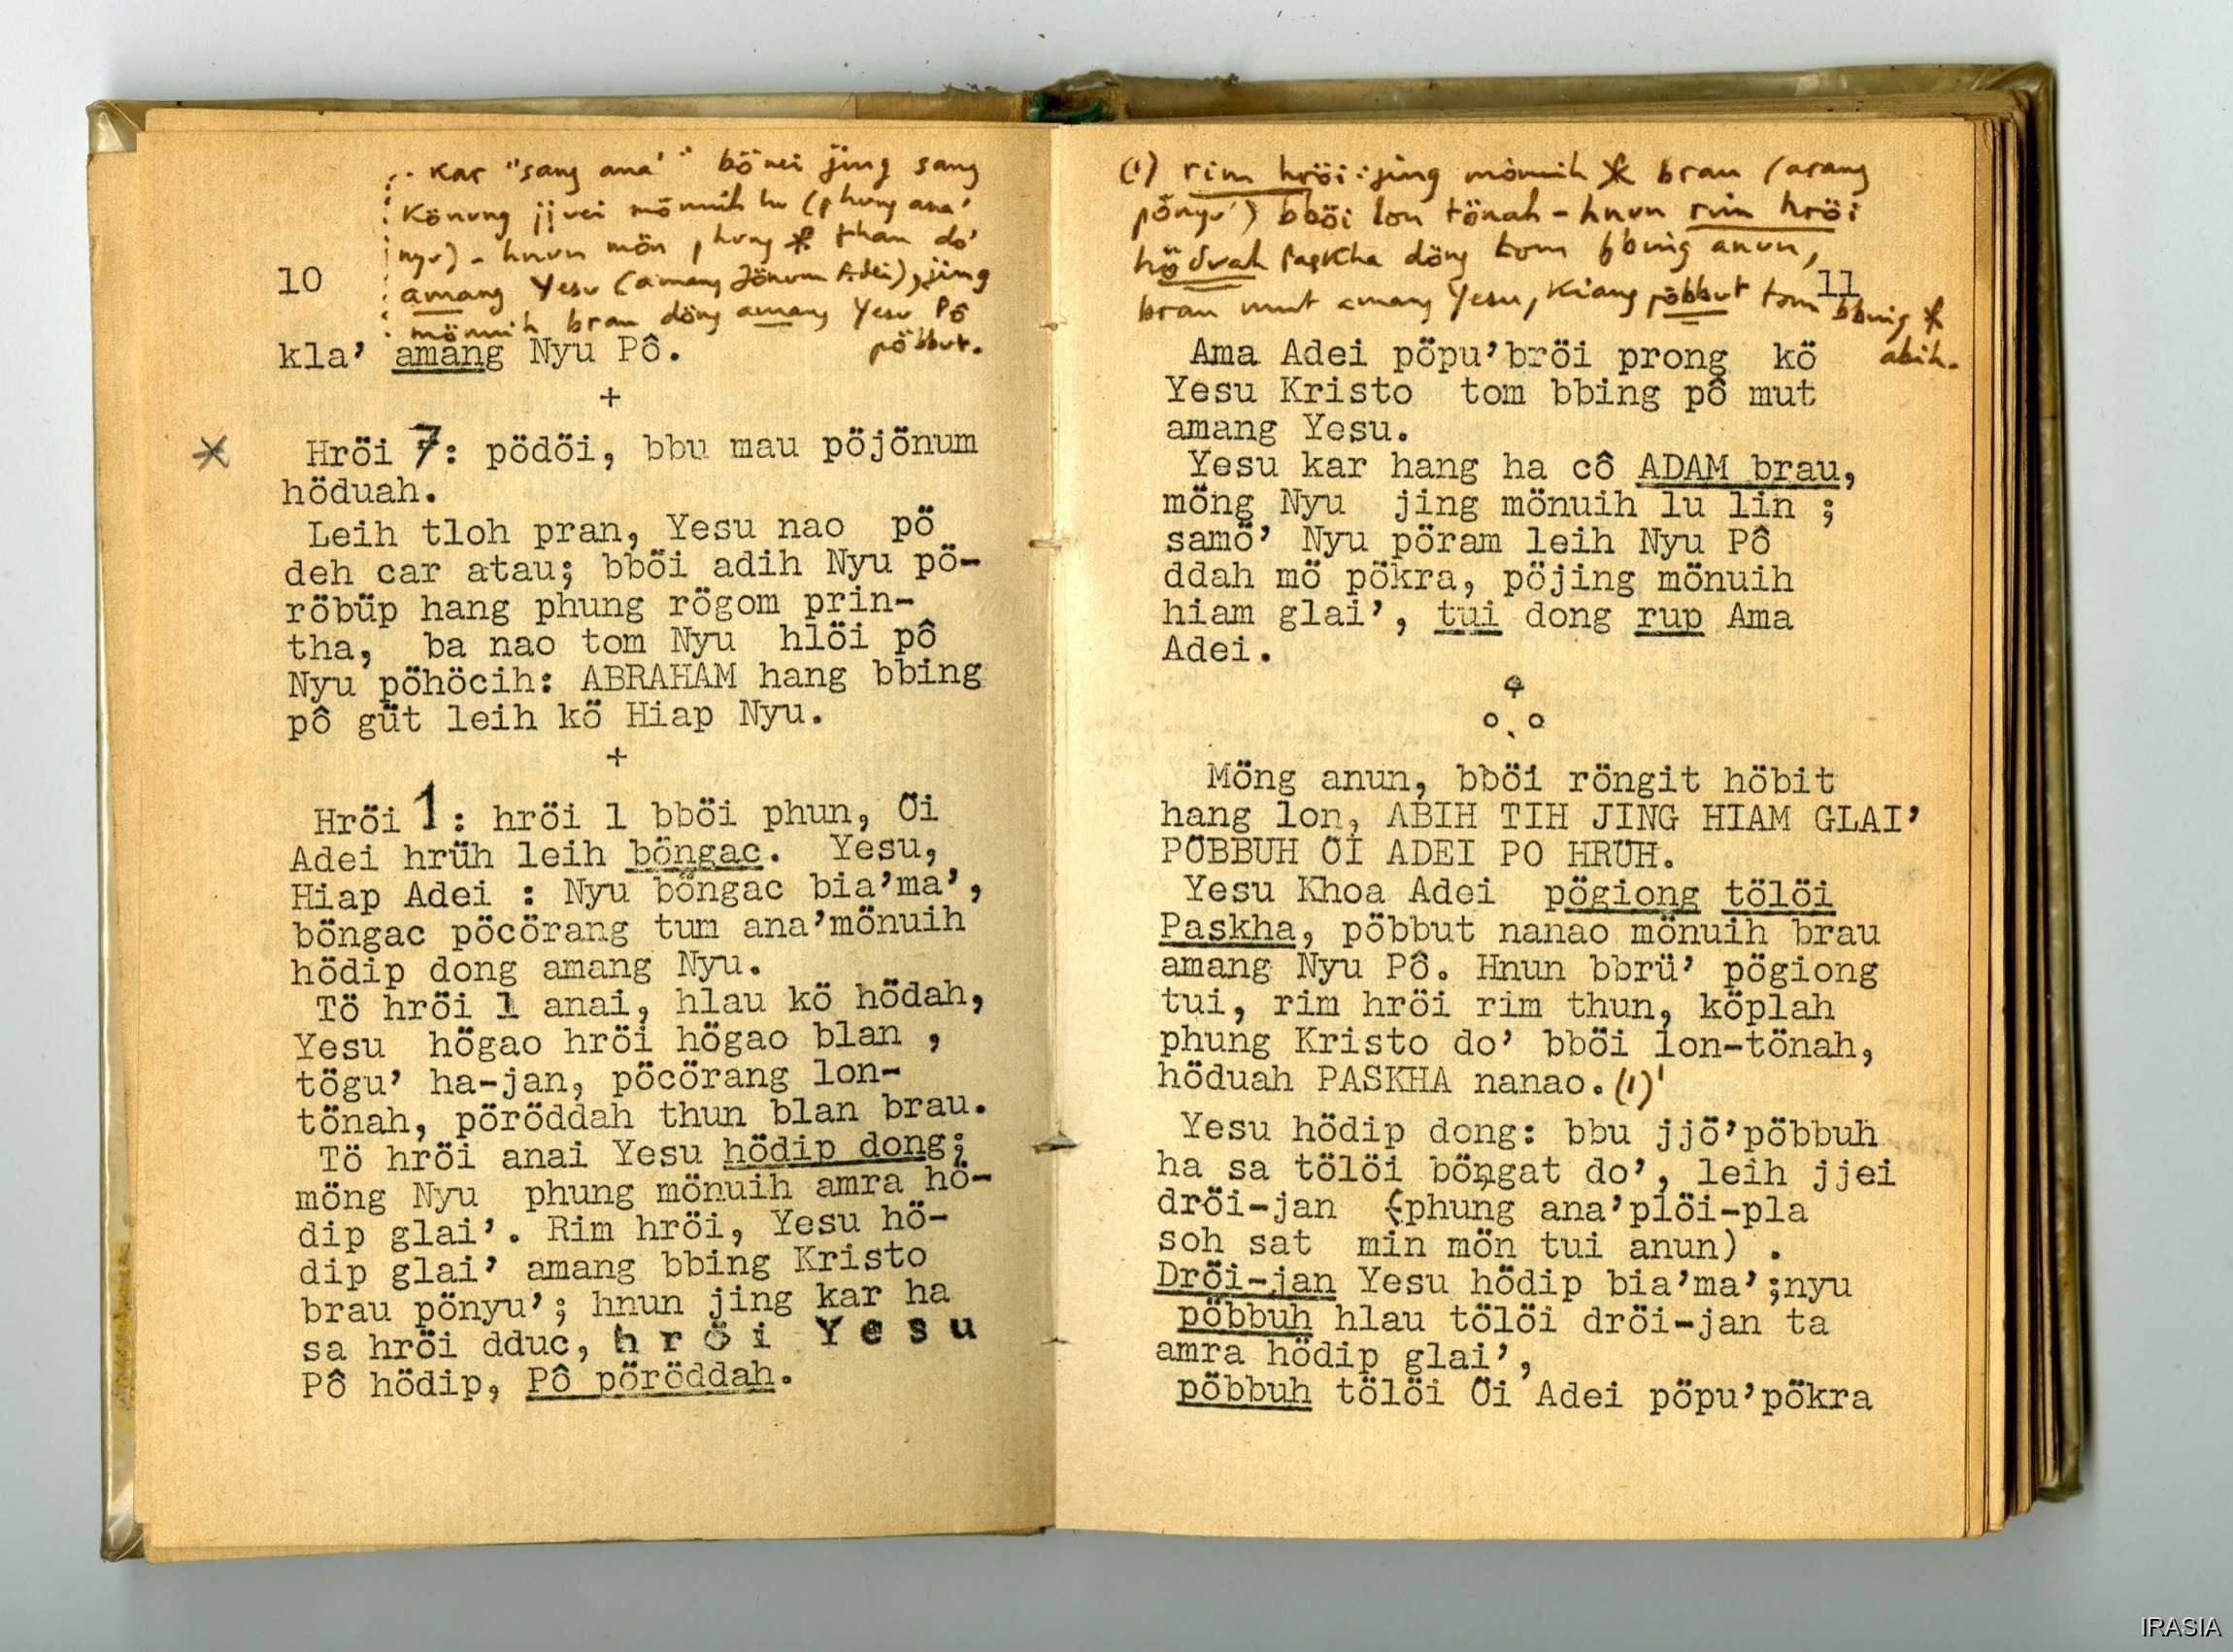 kar "sang ana'" bönei jing sang
könung jjuei mönuih hu (phung ana'
nyu) - hnun mön phung * than do'
amang Yesu (amang Jönum Adei), jing
mönuih brau döng amang Yesu Pô
pöbbut.
10
kla’ amang Nyu Pô.
+
Hröi 7: pödöi, bbu mau pöjönum
höduah.
Leih tloh pran, Yesu nao pö
deh car atau; bböi adih Nyu pö-
röbüp hang phung rögom prin-
tha, ba nao tom Nyu hlöi pô
Nyu pöhöcih: ABRAHAM hang bbing
pô güt leih kö Hiap Nyu.
+
Hröi 1: hröi 1 bböi phun, Öi
Adei hrüh leih böngac. Yesu,
Hiap Adei : Nyu böngac bia’ma’,
böngac pöcörang tum ana’mönuih
hödip dong amang Nyu.
Tö hröi 1 anai, hlau kö hödah,
Yesu högao hröi högao blan ,
tögu’ ha-jan, pöcörang lon-
tönah, pöröddah thun blan brau.
Tö hröi anai Yesu hödip dong;
möng Nyu phung mönuih amra hö-
dip glai’. Rim hröi, Yesu hö-
dip glai’ amang bbing Kristo
brau pönyu’; hnun jing kar ha
sa hröi dduc, hröi Yesu
Pô hödip, Pô pöröddah.
(1) rim hröi: jing mönuih * brau (arang
pönyu') bböi lon tönah - hnun rim hröi
höduah Paskha döng tom bbing anun,
brau mut amang Yesu, kiang pöbbut tom bbing *
abih.
11
Ama Adei pöpu’bröi prong kö
Yesu Kristo tom bbing pô mut
amang Yesu.
Yesu kar hang ha cô ADAM brau,
möng Nyu jing mönuih lu lin ;
samö’ Nyu pöram leih Nyu Pô
ddah mö pökra, pöjing mönuih
hiam glai’, tui dong rup Ama
Adei.
Möng anun, bböi röngit höbit
hang lon, ABIH TIH JING HIAM GLAI’
PÖBBUH ÖI ADEI PO HRÜH.
Yesu Khoa Adei pögiong tölöi
Paskha, pöbbut nanao mönuih brau
amang Nyu Pô. Hnun bbrü’ pögiong
tui, rim hröi rim thun, köplah
phung Kristo do’ bböi lon-tönah,
höduah PASKHA nanao. (1)
Yesu hödip dong: bbu jjö’pöbbuh
ha sa tölöi böngat do’, leih jjei
dröi-jan (phung ana’piöi-pla
soh sat min mön tui anun) .
Dröi-jan Yesu hödip bia’ma’;nyu
pöbbuh hlau tölöi dröi-jan ta
amra hödip glai’,
pöbbuh tölöi Öi Adei pöpu’pökra
IRASIA